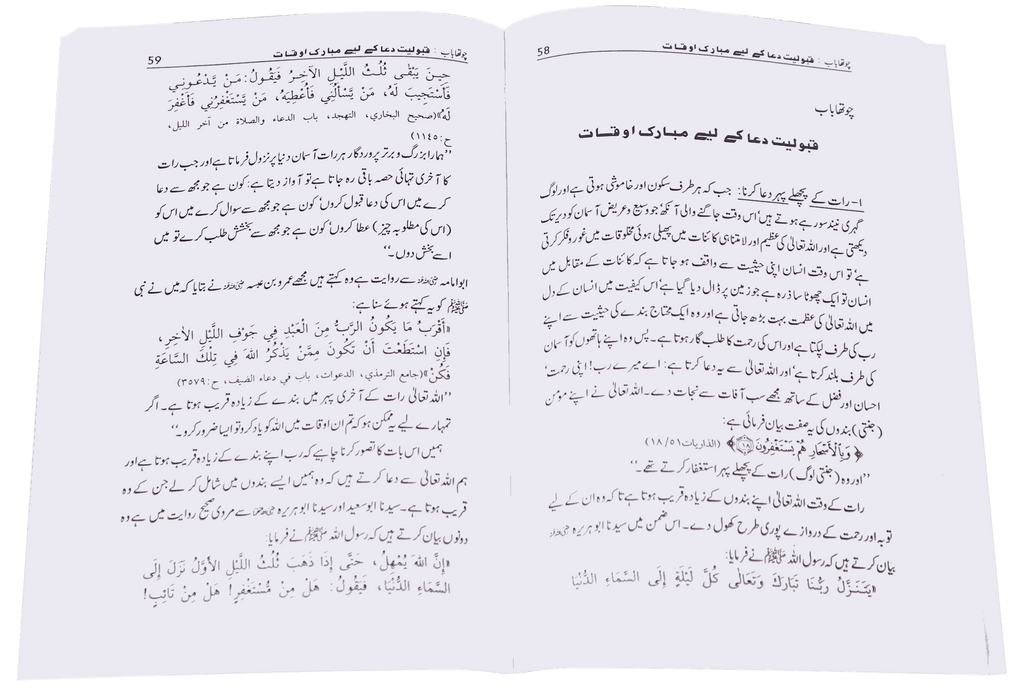 58 چوتھا باب : قبولیت دعا کے لیے مبارک اوقات
چوتھا باب
قبولیت دعا کے لیے مبارک اوقات
۱- رات کے پچھلے پہر دعا کرنا: جب کہ ہر طرف سکون اور خاموشی ہوتی ہے اور لوگ
گہری نیند سو رہے ہوتے ہیں' اس وقت جاگنے والی آنکھ' جو وسیع و عریض آسمان کو دیر تک
دیکھتی ہے اور اللہ تعالیٰ کی عظیم اور لامتناہی کائنات میں پھیلی ہوئی مخلوقات میں غور و فکر کرتی
ہے' تو اس وقت انسان اپنی حیثیت سے واقف ہو جاتا ہے کہ کائنات کے مقابل میں
انسان تو ایک چھوٹا سا ذرہ ہے جو زمین پر ڈال دیا گیا ہے' اس کیفیت میں انسان کے دل
میں اللہ تعالیٰ کی عظمت بہت بڑھ جاتی ہے اور وہ ایک محتاج بندے کی حیثیت سے اپنے
رب کی طرف لپکتا ہے اور اس کی رحمت کا طلب گار ہوتا ہے۔ پس وہ اپنے ہاتھوں کو آسمان
کی طرف بلند کرتا ہے' اور اللہ تعالیٰ سے یہ دعا کرتا ہے: اے میرے رب! اپنی رحمت'
احسان اور فضل کے ساتھ مجھے سب آفات سے نجات دے۔ اللہ تعالیٰ نے اپنے مؤمن
(جنتی) بندوں کی یہ صفت بیان فرمائی ہے:
﴿ وَبِالْأَسْحَارِ هُمْ يَسْتَغْفِرُونَ ۝۱۸ ﴾ (الذاریات ۵۱/ ۱۸)
''اور وہ (جنتی لوگ) رات کے پچھلے پہر استغفار کرتے تھے۔''
رات کے وقت اللہ تعالیٰ اپنے بندوں کے زیادہ قریب ہوتا ہے تاکہ وہ ان کے لیے
توبہ اور رحمت کے دروازے پوری طرح کھول دے۔ اس ضمن میں سیدنا ابو ہریرہ رضی اللہ عنہ
بیان کرتے ہیں کہ رسول اللہ ﷺ نے فرمایا:
«يَتَنَزَّلُ رَبُّنَا تَبَارَكَ وَتَعَالَى كُلَّ لَيْلَةٍ إِلَى السَّمَاءِ الدُّنْيَا
59 چوتھا باب : قبولیت دعا کے لیے مبارک اوقات
حِينَ يَبْقَى ثُلُثُ اللَّيْلِ الآخِرُ فَيَقُولُ: مَنْ يَدْعُونِي
فَأَسْتَجِيبَ لَهُ، مَنْ يَسْأَلُنِي فَأُعْطِيَهُ، مَنْ يَسْتَغْفِرُنِي فَأَغْفِرَ
لَهُ»(صحيح البخاري، التهجد، باب الدعاء والصلاة من آخر الليل،
ح:١١٤٥)
''ہمارا بزرگ و برتر پروردگار ہر رات آسمان دنیا پر نزول فرماتا ہے اور جب رات
کا آخری تہائی حصہ باقی رہ جاتا ہے تو آواز دیتا ہے: کون ہے جو مجھ سے دعا
کرے میں اس کی دعا قبول کروں' کون ہے جو مجھ سے سوال کرے میں اس کو
(اس کی مطلوبہ چیز) عطا کروں' کون ہے جو مجھ سے بخشش طلب کرے تو میں
اسے بخش دوں۔''
ابو امامہ رضی اللہ عنہ سے روایت ہے وہ کہتے ہیں مجھے عمرو بن عبسہ رضی اللہ عنہ نے بتایا کہ میں نے نبی
ﷺ کو یہ کہتے ہوئے سنا ہے:
«أَقْرَبُ مَا يَكُونُ الرَّبُّ مِنَ الْعَبْدِ فِي جَوْفِ اللَّيْلِ الآخِرِ،
فَإِنِ اسْتَطَعْتَ أَنْ تَكُونَ مِمَّنْ يَذْكُرُ اللهَ فِي تِلْكَ السَّاعَةِ
فَكُنْ»(جامع الترمذي، الدعوات، باب في دعاء الضيف، ح:٣٥٧٩)
''اللہ تعالیٰ رات کے آخری پہر میں بندے کے زیادہ قریب ہوتا ہے۔ اگر
تمہارے لیے یہ ممکن ہو کہ تم ان اوقات میں اللہ کو یاد کرو تو ایسا ضرور کرو۔''
ہمیں اس بات کا تصور کرنا چاہیے کہ رب اپنے بندے کے زیادہ قریب ہوتا ہے اور
ہم اللہ تعالیٰ سے دعا کرتے ہیں کہ وہ ہمیں ایسے بندوں میں شامل کر لے جن کے وہ
قریب ہوتا ہے۔ سیدنا ابو سعید اور سیدنا ابو ہریرہ رضی اللہ عنہما سے مروی صحیح روایت میں ہے وہ
دونوں بیان کرتے ہیں کہ رسول اللہ ﷺ نے فرمایا:
«إِنَّ اللهَ يُمْهِلُ، حَتَّى إِذَا ذَهَبَ ثُلُثُ اللَّيْلِ الأَوَّلُ نَزَلَ إِلَى
السَّمَاءِ الدُّنْيَا، فَيَقُولُ: هَلْ مِنْ مُسْتَغْفِرٍ! هَلْ مِنْ تَائِبٍ!